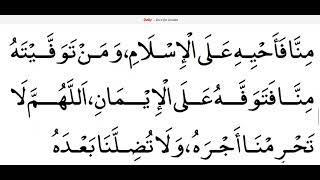 مِنَّا فَأَحْيِهِ عَلَى الْإِسْلَامِ، وَمَنْ تَوَفَّيْتَهُ
مِنَّا فَتَوَفَّهُ عَلَى الْإِيْمَانِ، اَللّٰهُمَّ لَا
تَحْرِمْنَا أَجْرَهُ، وَلَا تُضِلَّنَا بَعْدَهُ